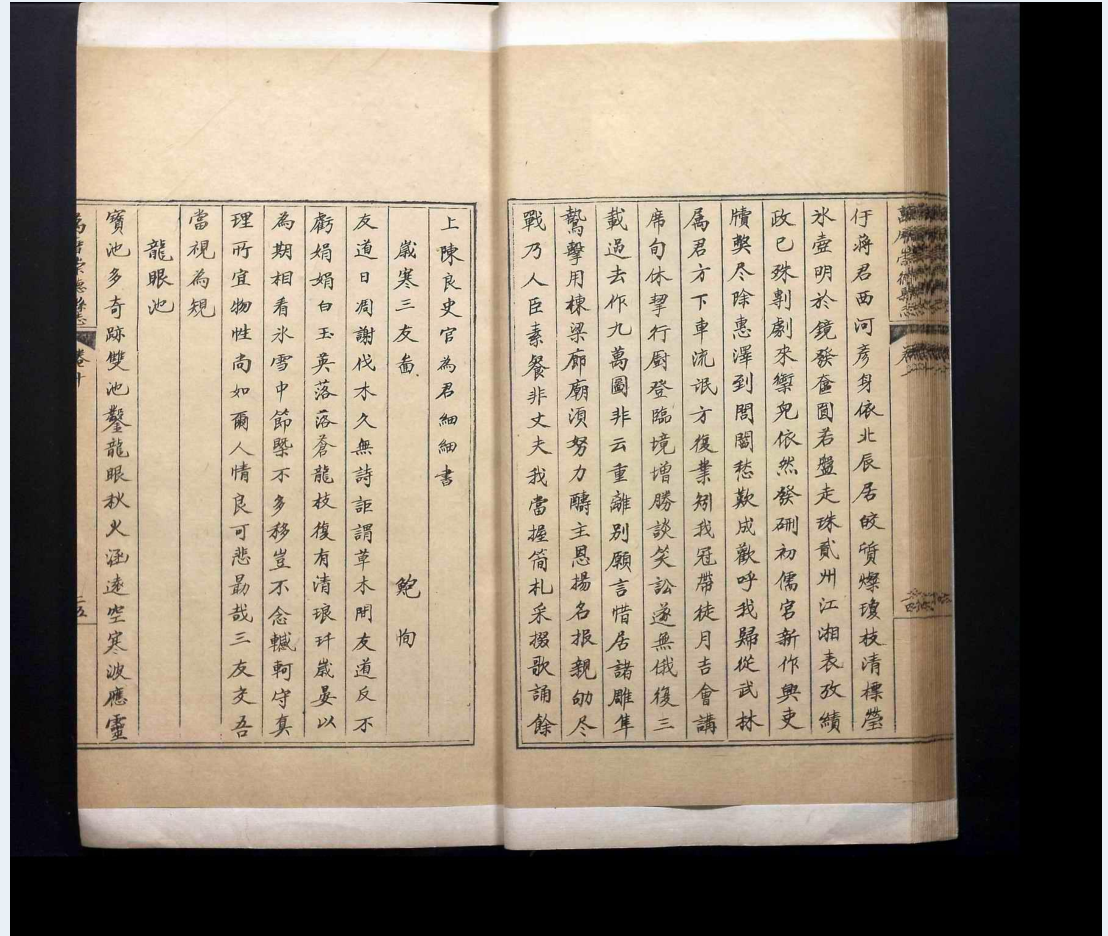 仔將君西河彦身依北辰居皎質燦瓊枝清標瑩
氷壺明於鏡發奩圓若盤走珠貳州江湘表攷績
政已殊剸劇來禦兒依然發硎初儒宮新作興吏
牘獘尽除惠澤到閭閻愁歎成歡呼我歸從武林
属君方下車流氓方復業矧我冠帶徒月吉會講
席旬休挈行厨登臨境增勝談笑訟遂無俄復三
載過去作九萬圖非云重離别願言惜居諸雕隼
騺擊用棟梁廊廟須努力酬主恩揚名报親劬尽
戰乃人臣素餐非丈夫我當握简札采掇歌誦餘
上陳良史官為君細細書
歲寒三友啚 鮑恂
友道日凋謝伐木久無詩詎謂草木間友道反不
虧娟娟白玉英落落蒼龍枝復有清琅玕歲晏以
為期相看氷雪中節槩不多移豈不念轗軻守真
理所宜物性尚如爾人情良可悲勗哉三友交吾
當視為規
龍眼池
寳池多奇跡雙池鑿龍眼秋火涵遠空寒波應靈
萬曆崇德縣志 卷十 二五